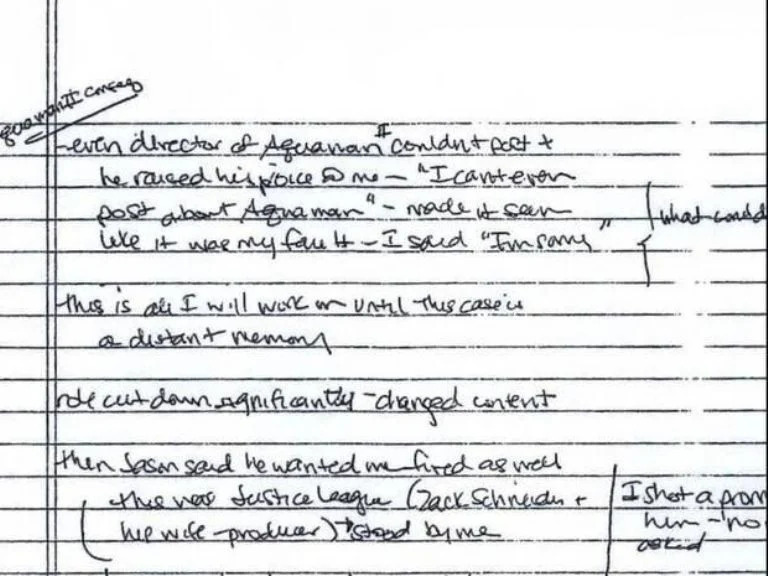 Aquaman II conseq
- even director of Aquaman II couldn't post +
he raised his voice @ me - "I can't even
post about Aquaman" - made it seem
like it was my fault - I said "I'm sorry"
what could
this is all I will work on until this case is
a distant memory
role cut down significantly - changed content
then Jason said he wanted me fired as well
this was Justice League (Zack Schneider +
his wife - producer) → stood by me
I shot a prom
him - no
asked